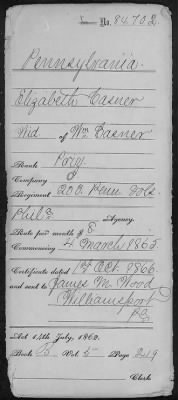 No. 84.702
Pennsylvania.
Elizabeth Casner
Wid of Wm Casner
Rank Priv.
Company
Regiment 200. Penn Vols.
Phila Agency.
Rate per month $ 8
Commencing 4 March 1865.
Certificate dated 1st Oct. 1866
and sent to James M. Wood
Williamsport
Pa
Act 14th July, 1862.
Book B Vol. 5 Page 249
Clerk